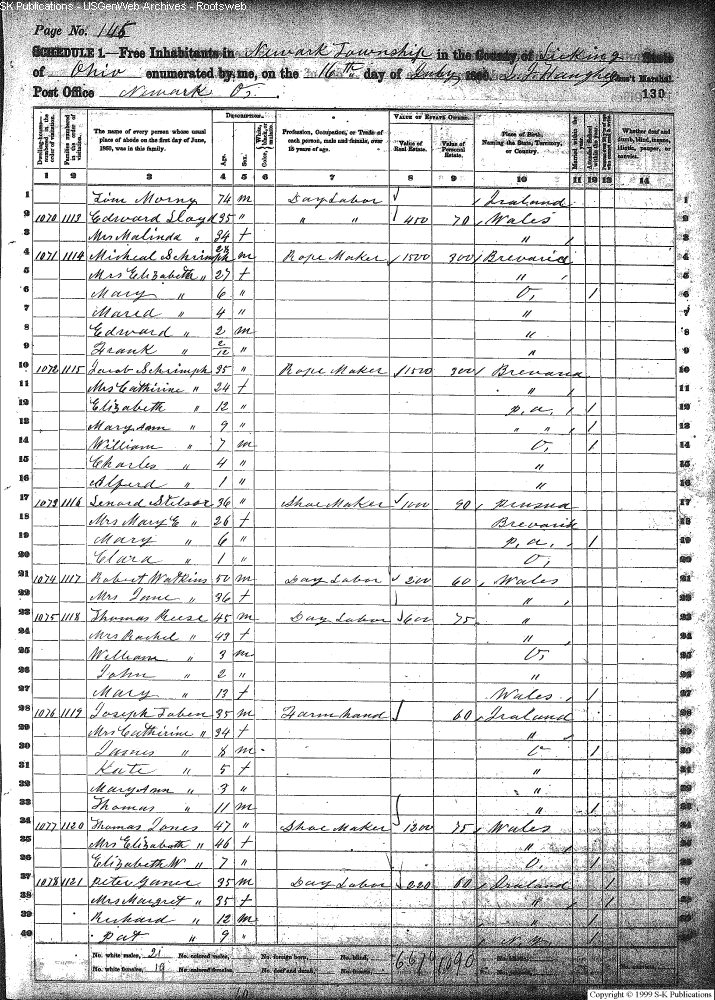 SK Publications - USGenWeb Archives - Rootsweb
Page No. 145
SCHEDULE 1.—Free Inhabitants in Newark Township in the County of Licking State
of Ohio enumerated by me, on the 16th day of July 1860. Ass't Marshal
Post Office Newark O. 130
DESCRIPTION. VALUE OF ESTATE OWNED.
Dwelling-houses—numbered in the order of visitation.
Families numbered in the order of visitation.
The name of every person whose usual place of abode on the first day of June, 1860, was in this family.
Age. Sex. White, black, or mulatto. Color
Profession, Occupation, or Trade of each person, male and female, over 15 years of age.
Value of Real Estate. Value of Personal Estate.
Place of Birth, Naming the State, Territory, or Country.
Married within the year.
Whether deaf and dumb, blind, insane, idiotic, pauper, or convict.
1 2 3 4 5 6 7 8 9 10 11 12 13 14
1 Morny 74 m Day Labor Iraland 1
2 1070 1113 Edward Lloyd 35 " " " 450 70 Wales 2
3 Mrs Malinda " 34 f " 3
4 1071 1114 Micheal Schrimph 28 m Rope Maker 1500 300 Brevaria 4
5 Mrs Elizabeth " 27 f " 5
6 Mary " 6 " O, 1 6
7 Maria " 4 " " 7
8 Edward " 2 m " 8
9 Frank " 2/12 " " 9
10 1072 1115 Jacob Schrimph 35 " Rope Maker 1500 300 Brevaria 10
11 Mrs Cathirine " 24 f " 11
12 Elizabeth " 12 " p,a, 1 12
13 Mary Ann " 9 " " " 1 13
14 William " 7 m O, 1 14
15 Charles " 4 " " 15
16 Alferd " 1 " " 16
17 1073 1116 Lenord 36 " Shoe Maker 1000 90 17
18 Mrs Mary E " 26 f Brevaria 18
19 Mary " 6 " p,a, 1 19
20 Clara " 1 " O, 20
21 1074 1117 Robert Watkins 50 m Day Labor 200 60 Wales 21
22 Mrs Jane " 36 f " 22
23 1075 1118 Thomas Reese 45 m Day Labor 600 75 " 23
24 Mrs Rachel " 43 f " 24
25 William " 3 m O, 25
26 John " 2 " " 26
27 Mary " 13 f Wales 1 27
28 1076 1119 Joseph Taben 35 m Farm hand 60 Iraland 28
29 Mrs Cathirine " 34 f " 29
30 James " 8 m O 1 30
31 Kate " 5 f " 31
32 Mary Ann " 3 " " 32
33 Thomas " 11 m " 1 33
34 1077 1120 Thomas Jones 47 " Shoe Maker 1200 75 Wales 34
35 Mrs Elizabeth " 46 f " 35
36 Elizabeth W " 7 " O, 1 36
37 1078 1121 Peter 35 m Day Labor 220 60 Iraland 1 37
38 Mrs Margret " 35 f " 1 38
39 Richard " 12 m " 1 39
40 Pat " 9 " N.Y. 1 40
No. white males, 21 No. colored males, No. foreign born, No. blind,
No. white females, 19 No. colored females, No. deaf and dumb, 1090
Copyright © 1999 S-K Publications